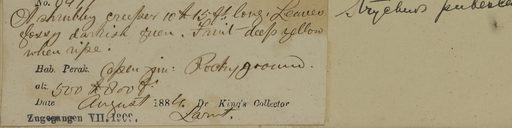 No.
A shrubby creeper 10 to 15 ft. long. Leaves
glossy darkish green. Fruit deep yellow
when ripe.
Hab. Perak. Open jun: Rocky ground.
alt. 500 to 800 ft.
Date August 1884. Dr King's Collector
Larut.
Zugegangen VII. 1909.
Strychnos